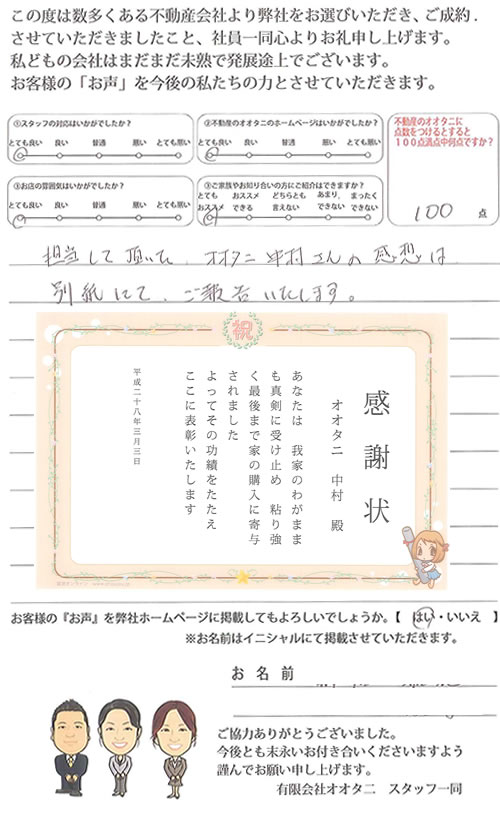 この度は数多くある不動産会社より弊社をお選びいただき、ご成約.
させていただきましたこと、社員一同心よりお礼申し上げます。
私どもの会社はまだまだ未熟で発展途上でございます。
お客様の「お声」を今後の私たちの力とさせていただきます。
①スタッフの対応はいかがでしたか?
とても良い 良い 普通 悪い とても悪い
②不動産のオオタニのホームページはいかがでしたか?
とても良い 良い 普通 悪い とても悪い
③お店の雰囲気はいかがですか?
とても良い 良い 普通 悪い とても悪い
③ご家族やお知り合いの方にご紹介はできますか?
とても オススメ どちらとも あまり、 まったく
おススメ できる 言えない できない できない
不動産のオオタニに
点数をつけるとすると
100点満点中何点ですか?
100 点
担当して頂いた、オオタニ中村さんの感想は
別紙にて、ご報告いたします。
祝
感謝状
オオタニ 中村 殿
あなたは 我家のわがまま
も真剣に受け止め 粘り強
く最後まで家の購入に寄与
されました
よってその功績をたたえ
ここに表彰いたします
平成二十八年三月三日
お客様の『お声』を弊社ホームページに掲載してもよろしいでしょうか。【 はい・いいえ 】
※お名前はイニシャルにて掲載させていただきます。
お 名 前
ご協力ありがとうございました。
今後とも末永いお付き合いくださいますよう
謹んでお願い申し上げます。
有限会社オオタニ スタッフ一同